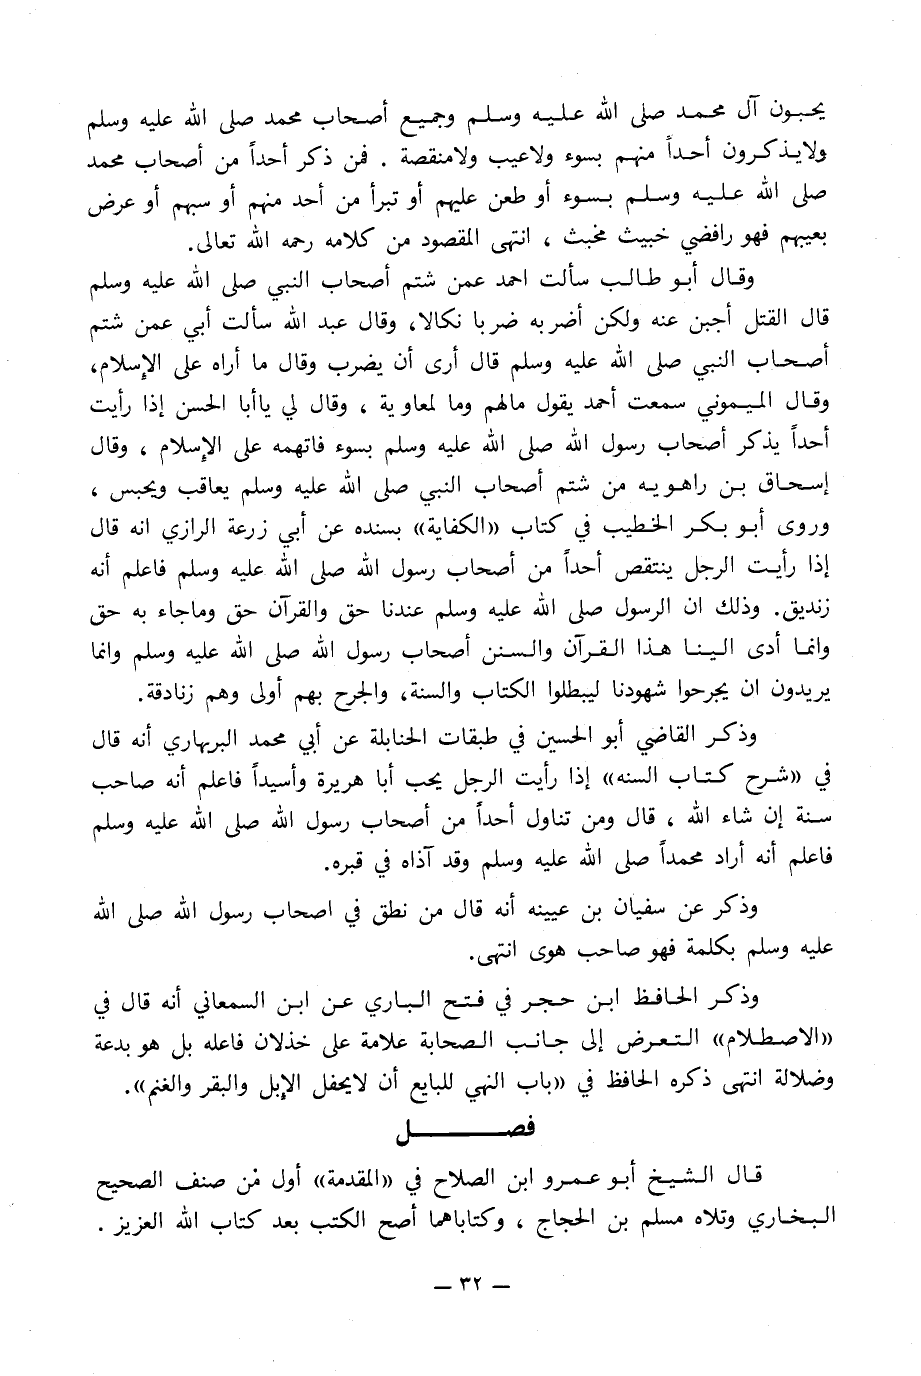 يحبون آل محمد صلى الله عليه وسلم وجميع أصحاب محمد صلى الله عليه وسلم
ولايذكرون أحداً منهم بسوء ولاعيب ولامنقصة . فمن ذكر أحداً من أصحاب محمد
صلى الله عليه وسلم بسوء أو طعن عليهم أو تبرأ من أحد منهم أو سبهم أو عرض
بعيبهم فهو رافضي خبيث مخبث ، انتهى المقصود من كلامه رحمه الله تعالى.
وقال أبو طالب سألت احمد عمن شتم أصحاب النبي صلى الله عليه وسلم
قال القتل أجبن عنه ولكن أضربه ضربا نكالا، وقال عبد الله سألت أبي عمن شتم
أصحاب النبي صلى الله عليه وسلم قال أرى أن يضرب وقال ما أراه على الإسلام،
وقال الميموني سمعت أحمد يقول مالهم وما لمعاوية ، وقال لي ياأبا الحسن إذا رأيت
أحداً يذكر أصحاب رسول الله صلى الله عليه وسلم بسوء فاتهمه على الإسلام ، وقال
إسحاق بن راهويه من شتم أصحاب النبي صلى الله عليه وسلم يعاقب ويحبس ،
وروى أبو بكر الخطيب في كتاب «الكفاية» بسنده عن أبي زرعة الرازي انه قال
إذا رأيت الرجل ينتقص أحداً من أصحاب رسول الله صلى الله عليه وسلم فاعلم أنه
زنديق. وذلك ان الرسول صلى الله عليه وسلم عندنا حق والقرآن حق وماجاء به حق
وانما أدى الينا هذا القرآن والسنن أصحاب رسول الله صلى الله عليه وسلم وانما
يريدون ان يجرحوا شهودنا ليبطلوا الكتاب والسنة، والجرح بهم أولى وهم زنادقة.
وذكر القاضي أبو الحسين في طبقات الحنابلة عن أبي محمد البربهاري أنه قال
في «شرح كتاب السنه» إذا رأيت الرجل يحب أبا هريرة وأسيداً فاعلم أنه صاحب
سنة إن شاء الله ، قال ومن تناول أحداً من أصحاب رسول الله صلى الله عليه وسلم
فاعلم أنه أراد محمداً صلى الله عليه وسلم وقد آذاه في قبره.
وذكر عن سفيان بن عيينه أنه قال من نطق في اصحاب رسول الله صلى الله
عليه وسلم بكلمة فهو صاحب هوى انتهى.
وذكر الحافظ ابن حجر في فتح الباري عن ابن السمعاني أنه قال في
«الاصطلام» التعرض إلى جانب الصحابة علامة على خذلان فاعله بل هو بدعة
وضلالة انتهى ذكره الحافظ في «باب النهي للبايع أن لايحفل الإبل والبقر والغنم».
فصل
قال الشيخ أبو عمرو ابن الصلاح في «المقدمة» أول من صنف الصحيح
البخاري وتلاه مسلم بن الحجاج ، وكتاباهما أصح الكتب بعد كتاب الله العزيز .
— ٣٢ —